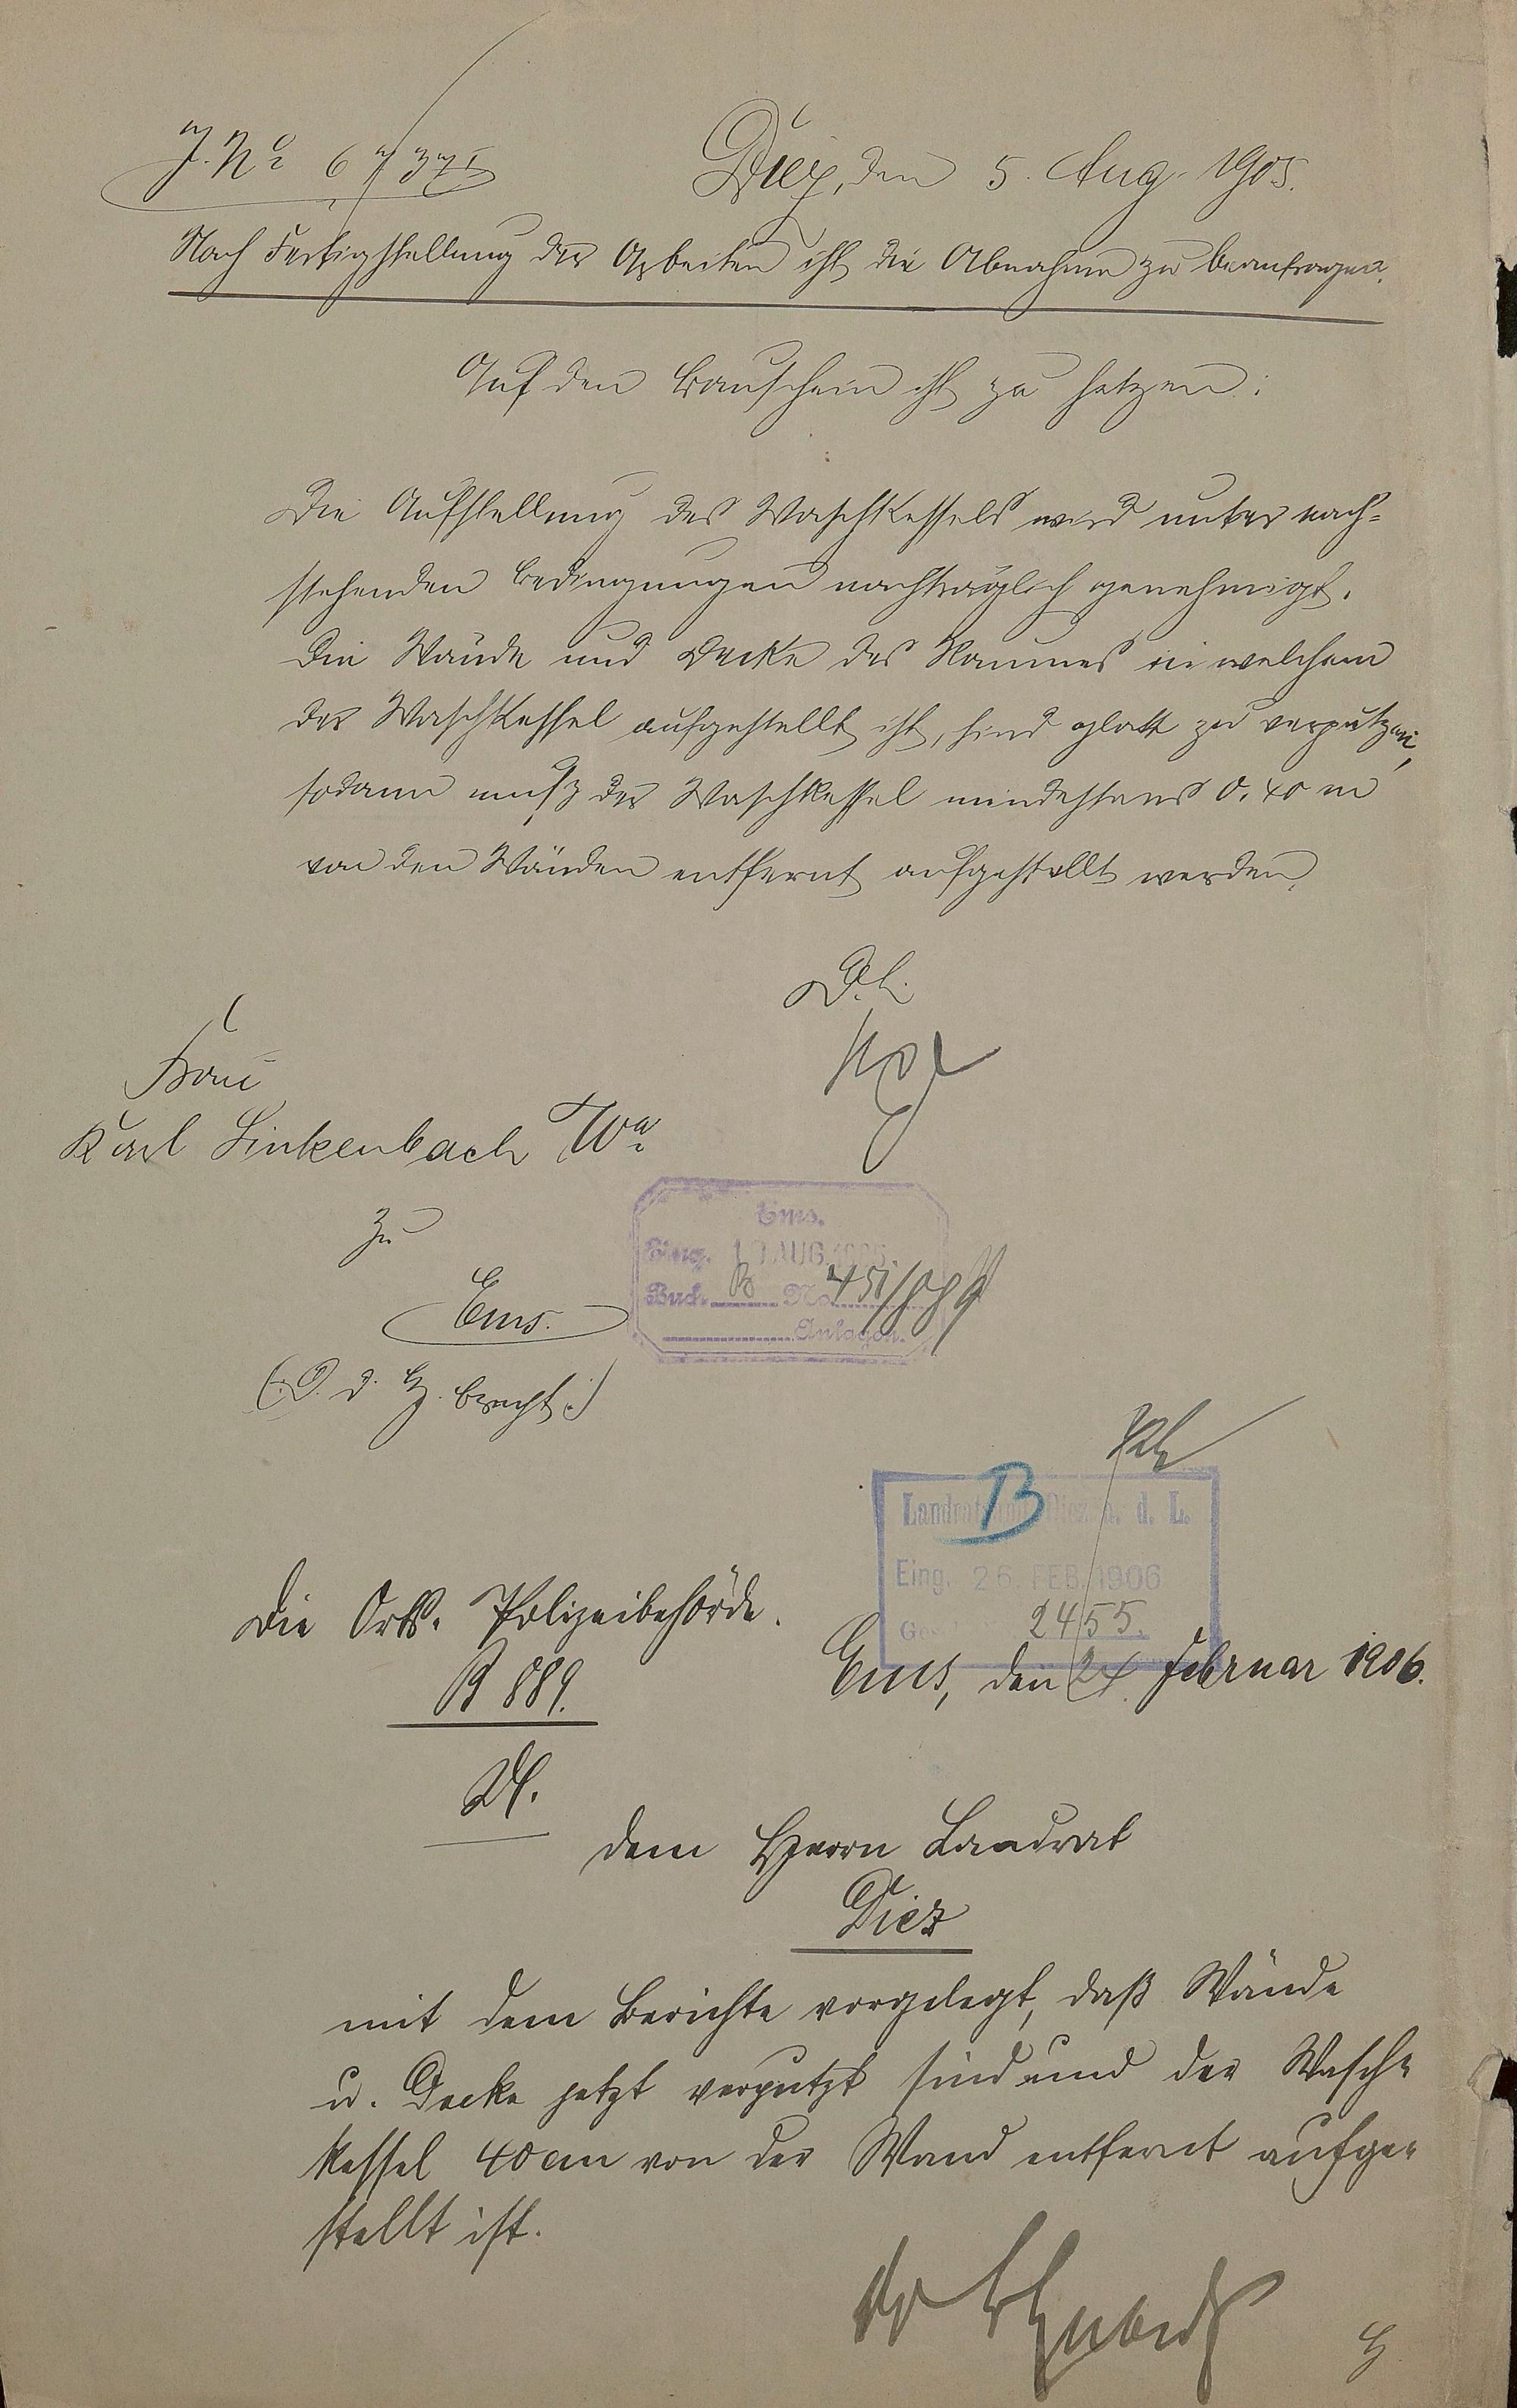 J. Nº 6
Diez, den 5. Aug. 1905.
Nach Fertigstellung der Arbeiten ist die Abnahme zu beantragen.
Auf den Bauschein ist zu setzen:
Die Aufstellung des Waschkessels wird unter nach-
stehenden Bedingungen nachträglich genehmigt.
Die Wände und Decke des Raumes in welchem
der Waschkessel aufgestellt ist, sind glatt zu verputzen,
sodann muß der Waschkessel mindestens 0,40 m
von den Wänden entfernt aufgestellt werden.
D. L.
Frau
Karl Linkenbach Wwe
zu
Ems.
Ems.
Eing. AUG. 1905
Buch B No. 451/889
Anlagen.
B
Landratsamt Diez a. d. L.
Eing. 26. FEB. 1906
2455.
Die Orts-Polizeibehörde.
B 889.
Ems, den 24. Februar 1906.
dem Herrn Landrat
Diez
mit dem Berichte vorgelegt, daß Wände
u. Decke jetzt verputzt sind und der Wasch-
kessel 40 cm von der Wand entfernt aufge-
stellt ist.